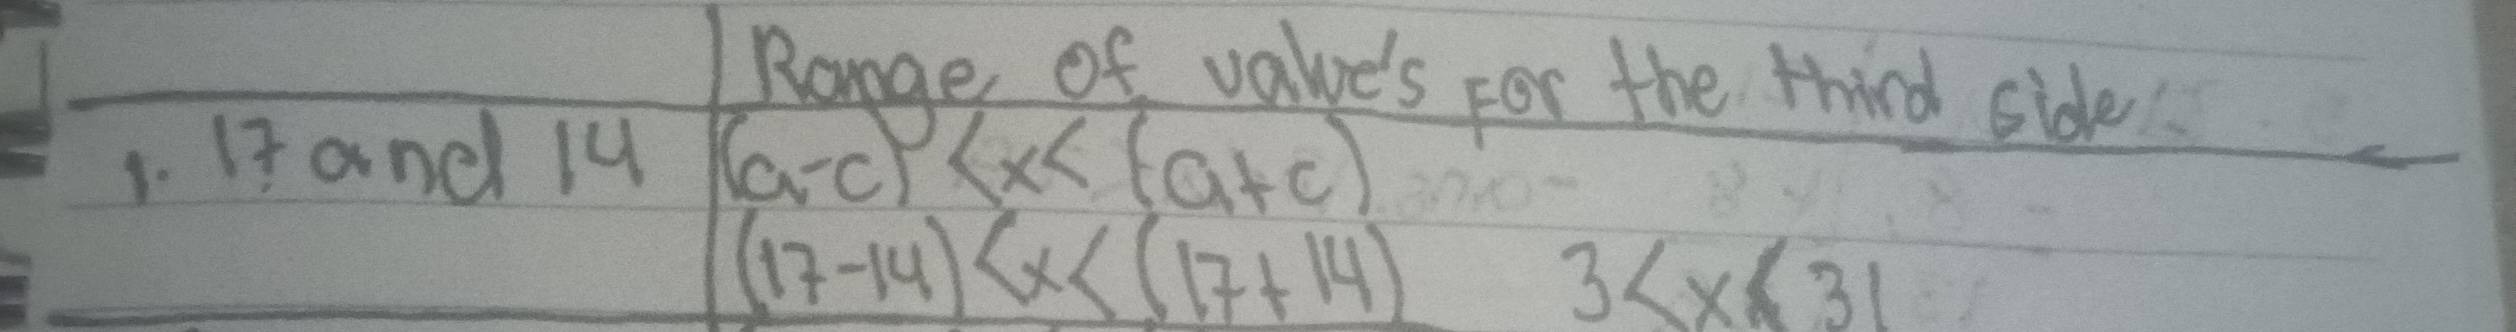 Range of value's For the third side
1. 17 and 14 (a-c) <x< (a+c)
(17-14) <x< (17+14) 3<x<31